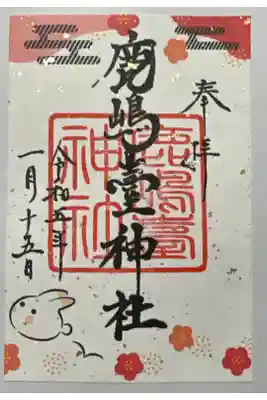 奉拝
鹿嶋臺神社
鹿嶋臺神社
令和五年
一月十五日